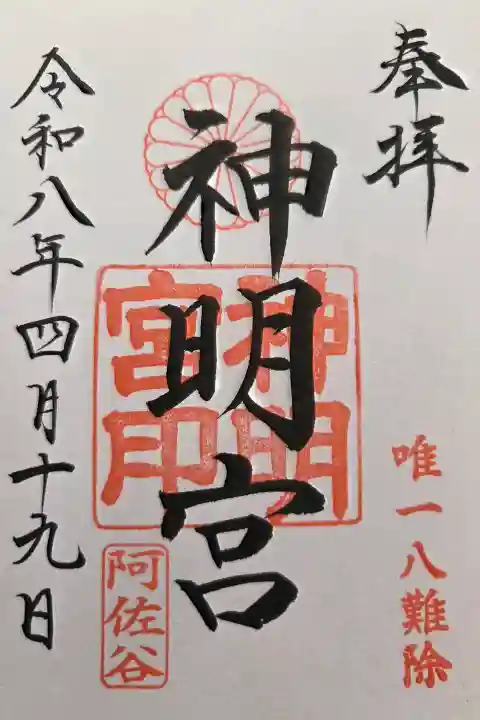 奉拝
唯一八難除
神明宮
神明
宮印
阿佐谷
令和八年四月十九日